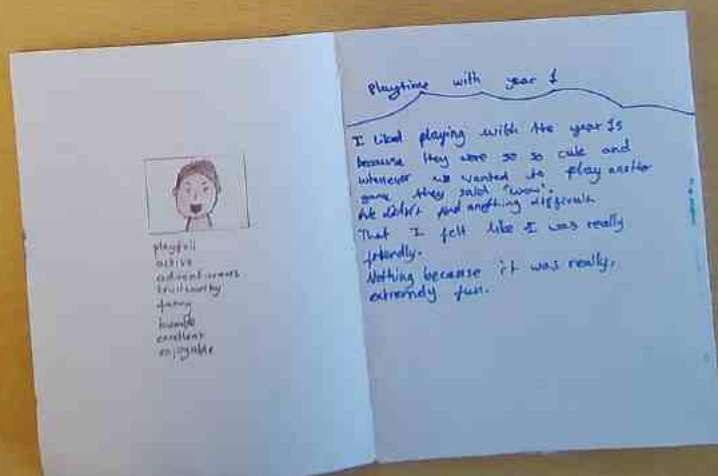 playfull
active
adventurous
trustworthy
funny
humble
excellent
enjoyable
Playtime with year 1
I liked playing with the year 1s
because they were so so cute and
whenever we wanted to play another
game they said "wow".
We didn't find anything difficult.
That I felt like I was really
friendly.
Nothing because it was really,
extremely fun.